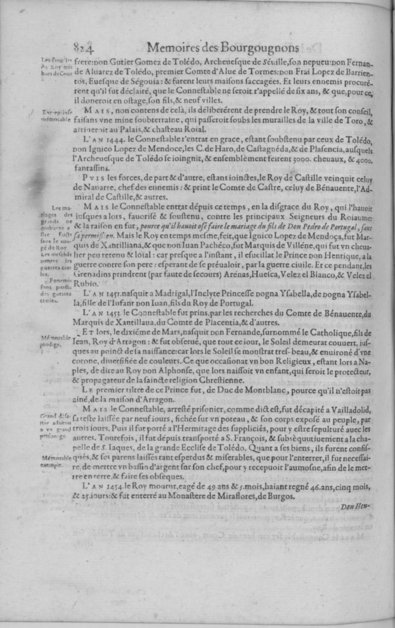 824 Memoires des Bourgougnons
frere: non Gutier Gomez de Tolédo, Archeuesque de Séuille, son neputeu: non Fernan-
de Aluarez de Tolédo, premier Comte d'Alue de Tormes: non Frai Lopez de Barrien-
tos, Euesque de Ségouia: & furent leurs maisons saccagées. Et leurs ennemis procuré-
rent qu'il fut déclairé, que le Connestable ne seroit r'appellé de six ans, & que, pour ce,
il doneroit en ostage, son fils, & neuf villes.
MAIS, non contens de celà, ils delibérérent de prendre le Roy, & tout son conseil,
faisans vne mine soubterraine, qui passeroit soubs les murailles de la ville de Toro, &
arriueroit au Palais, & chasteau Roial.
L'AN 1444. le Connestable r'entrat en grace, estant soubstenu par ceux de Tolédo,
non Iguico Lopez de Mendoce, les C. de Haro, de Castagnéda, & de Plasencia, ausquels
l'Archeuesque de Tolédo se ioingnit, & ensemblément feirent 3000. cheuaux, & 4000.
fantassins.
PVIS les forces, de part & d'autre, estans ioinctes, le Roy de Castille veinquit celuy
de Nauarre, chef des ennemis: & print le Comte de Castre, celuy de Bénauente, l'Ad-
miral de Castille, & autres.
MAIS le Connestable entrat depuis ce temps, en la disgrace du Roy, qui l'hauoit
iusques alors, fauorisé & soustenu, contre les principaux Seigneurs du Roiaume:
& la raison en fut, pource qu'il hauoit osé faire le mariage du fils de Don Pedro de Portugal, sans
sa permission. Mais le Roy en ce temps mesme, feit, que Iguico Lopez de Mendoça, fut Mar-
quis de Xantillana, & que non Iuan Pachéco, fut Marquis de Villéne, qui fut vn cheua-
lier peu retenu & loïal: car presque a l'instant, il sfoscillat le Prince non Henrique, a la
guerre contre son pere: espérant de se préualoir, par la guerre ciuile. Et ce pendant, les
Grenadins prindrent (par faute de secours) Arénas, Huesca, Velez el Blanco, & Velez el
Rubio.
L'AN 1451. nasquit a Madrigal, l'Inclyte Princesse nogna Ysabella, de nogna Ysabel-
la, fille de l'Infant non Iuan, fils du Roy de Portugal.
L'AN 1453 le Connestable fut prins, par les recherches du Comte de Bénauente, du
Marquis de Xantillana, du Comte de Placentia, & d'autres.
ET lors, le dixiéme de Mars, nasquit non Fernande, surnommé le Catholique, fils de
Iean, Roy d'Arragon: & fut obserué, que tout ce iour, le Soleil demeurat couuert, ius-
ques au poinct de la naissance: car lors le Soleil se monstrat tres-beau, & enuironé d'vne
coronne, diuersifiée de couleurs. Ce que occasionat vn bon Religieux, estant lors a Na-
ples, de dire au Roy non Alphonse, que lors naissoit vn enfant, qui seroit le protecteur,
& propagateur de la saincte religion Chrestienne.
LE premier tiltre de ce Prince fut, de Duc de Montblanc, pource qu'il n'estoit pas
aîné, de la maison d'Arragon.
MAIS le Connestable, arresté prisonier, comme dict est, fut décapité a Vailladolid,
sa teste laissée par neuf iours, fichée sur vn poteau, & son corps exposé au peuple, par
trois iours. Puis il fut porté a l'Hermitage des suppliciés, pour y estre sepulturé auec les
autres. Toutefois, il fut depuis transporté a S. François, & subséquutiuement a la cha-
pelle de S. Iaques, de la grande Ecclise de Tolédo. Quant a ses biens, ils furent confis-
qués, & ses parens laissés tant esperdus & miserables, que pour l'enterrer, il fut necessai-
re, de mettre vn bassin d'argent sur son chef, pour y recepuoir l'aumosne, afin de le met-
tre en terre, & faire ses obseques.
L'AN 1454. le Roy mourut, eagé de 49 ans & 5. mois, haiant regné 46. ans, cinq mois,
& 25. iours: & fut enterré au Monastére de Miraflores, de Burgos.
Don Hen-